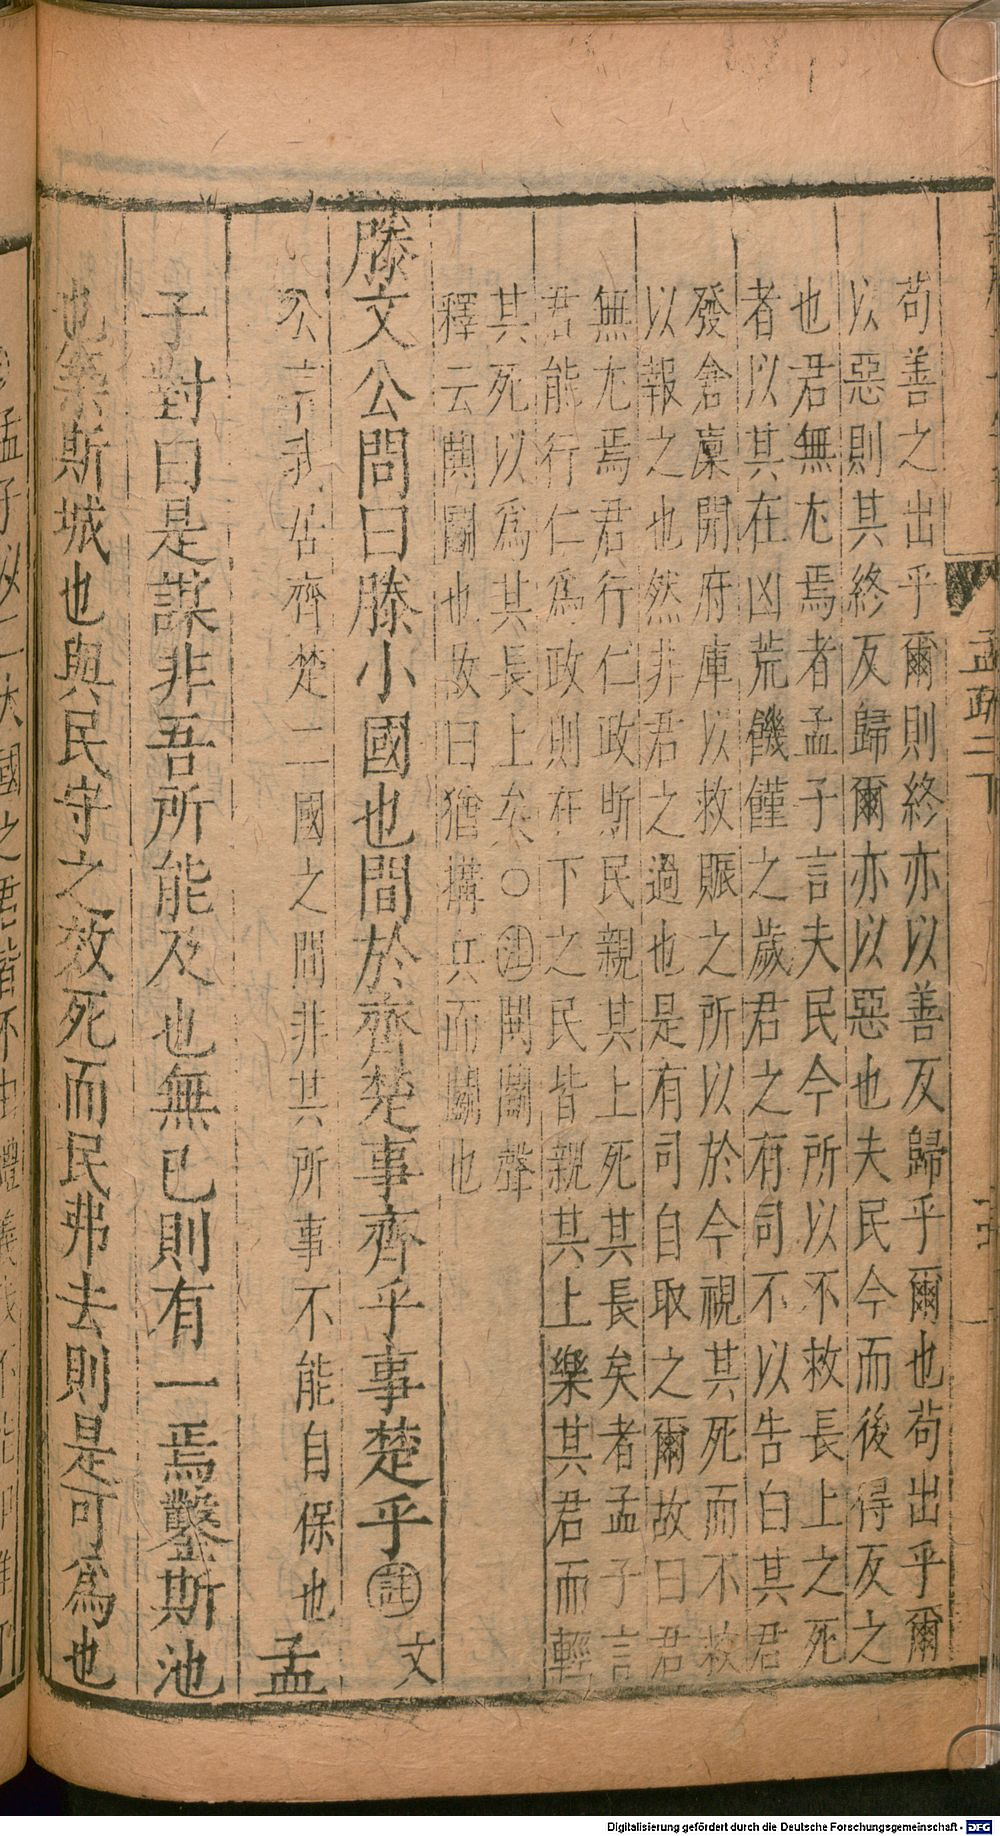 苟善之出乎爾則終亦以善反歸乎爾也苟出乎爾
以惡則其終反歸爾亦以惡也夫民今而後得反之
也君無尤焉者孟子言夫民今所以不救長上之死
者以其在凶荒饑僅之歲君之有司不以告白其君
發倉廩開府庫以救賑之所以於今視其死而不救
以報之也然非君之過也是有司自取之爾故曰君
無尤焉君行仁政斯民親其上死其長矣者孟子言
君能行仁爲政則在下之民皆親其上樂其君而輕
其死以爲其長上矣○注鬨鬭聲
釋云鬨鬭也故曰猶構兵而鬭也
滕文公問曰滕小國也間於齊楚事齊乎事楚乎註文
公言我居齊楚二國之間非其所事不能自保也孟
子對曰是謀非吾所能及也無已則有一焉鑿斯池
也築斯城也與民守之效死而民弗去則是可爲也
孟疏二下
Digitalisierung gefördert durch die Deutsche Forschungsgemeinschaft - DFG